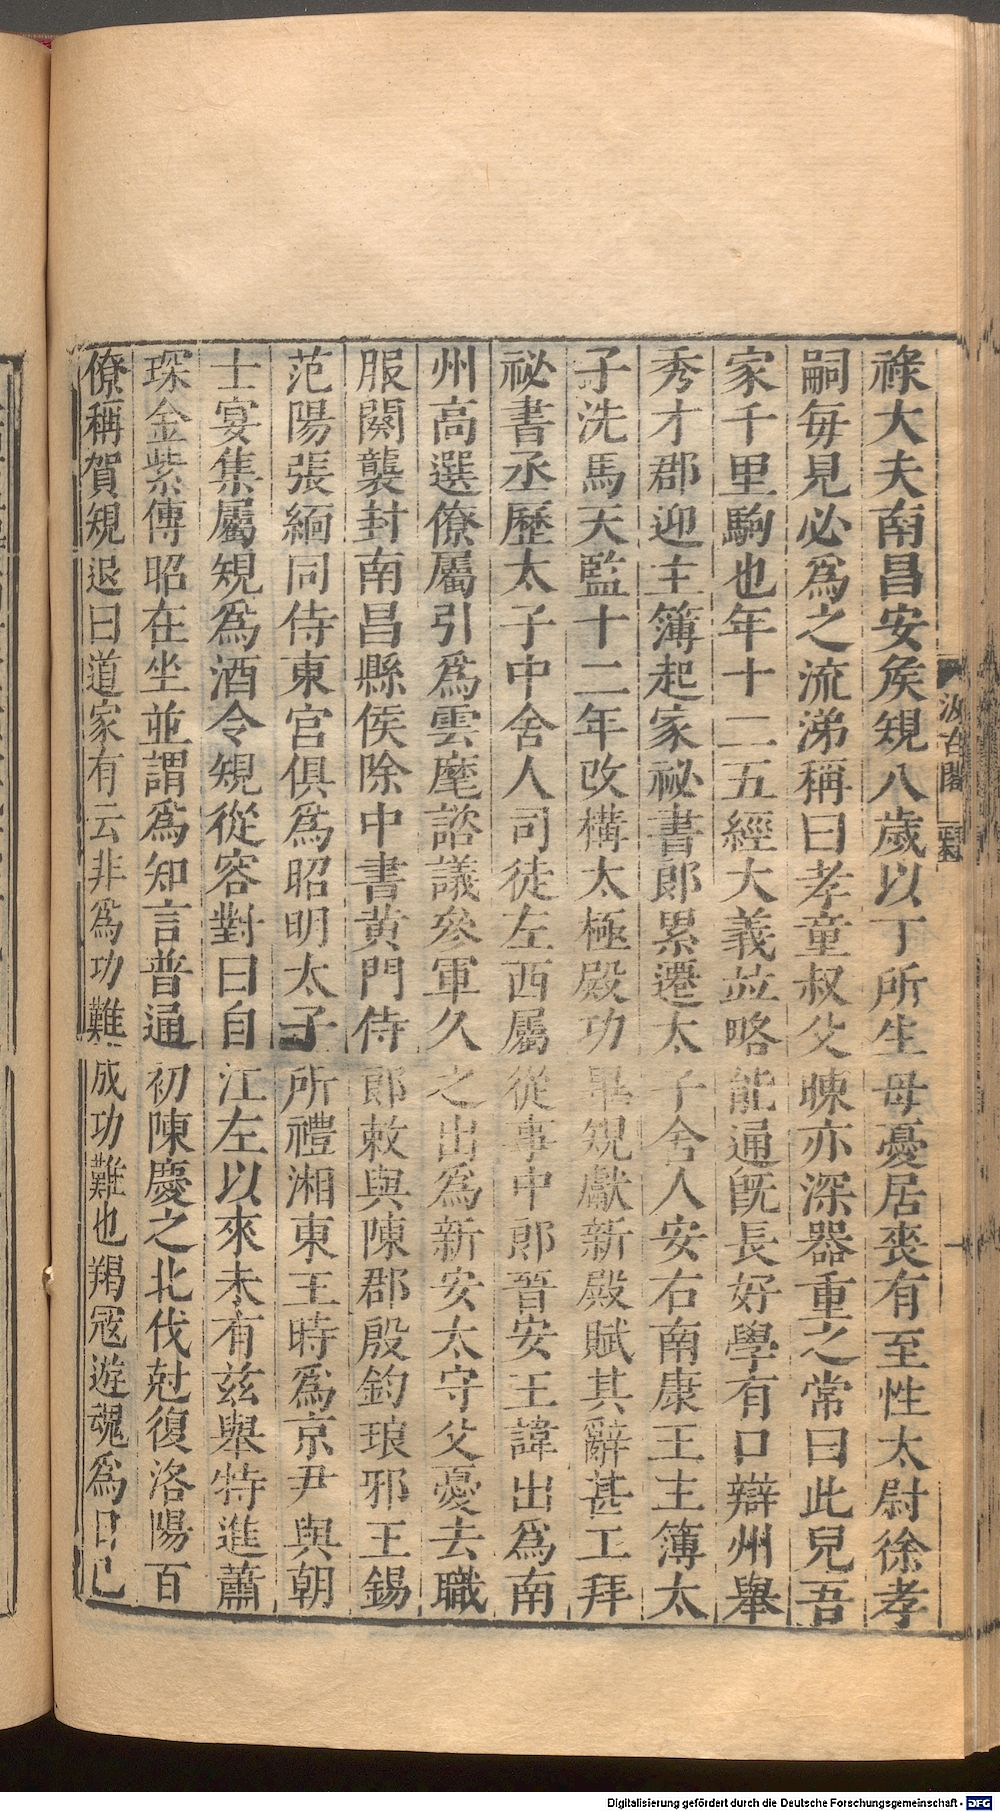 祿大夫南昌安矦規八歲以丁所生母憂居喪有至性太尉徐孝
嗣每見必爲之流涕稱曰孝童叔父暕亦深器重之常曰此兒吾
家千里駒也年十二五經大義竝略能通旣長好學有口辯州舉
秀才郡迎主簿起家祕書郎累遷太子舍人安右南康王主簿太
子洗馬天監十二年改構太極殿功畢規獻新殿賦其辭甚工拜
祕書丞歷太子中舍人司徒左西屬從事中郎晉安王諱出爲南
州高選僚屬引爲雲麾諮議參軍久之出爲新安太守父憂去職
服闋襲封南昌縣侯除中書黃門侍郎敕與陳郡殷鈞琅邪王錫
范陽張緬同侍東宮俱爲昭明太子所禮湘東王時爲京尹與朝
士宴集屬規爲酒令規從容對曰自江左以來未有茲舉特進蕭
琛金紫傅昭在坐並謂爲知言普通初陳慶之北伐尅復洛陽百
僚稱賀規退曰道家有云非爲功難成功難也羯寇遊魂爲日已
汲古閣
Digitalisierung gefördert durch die Deutsche Forschungsgemeinschaft - DFG